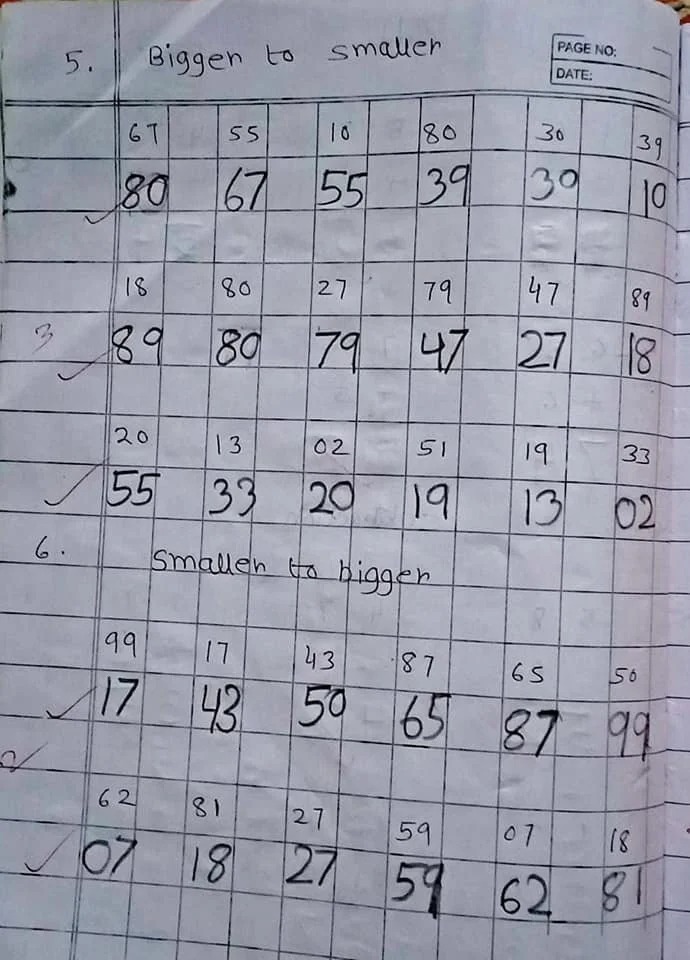 5. Bigger to smaller
PAGE NO:
DATE:
67 55 10 80 30 39
80 67 55 39 30 10
18 80 27 79 47 89
3
89 80 79 47 27 18
20 13 02 51 19 33
55 33 20 19 13 02
6. Smaller to bigger
99 17 43 87 65 50
17 43 50 65 87 99
62 81 27 59 07 18
07 18 27 59 62 81